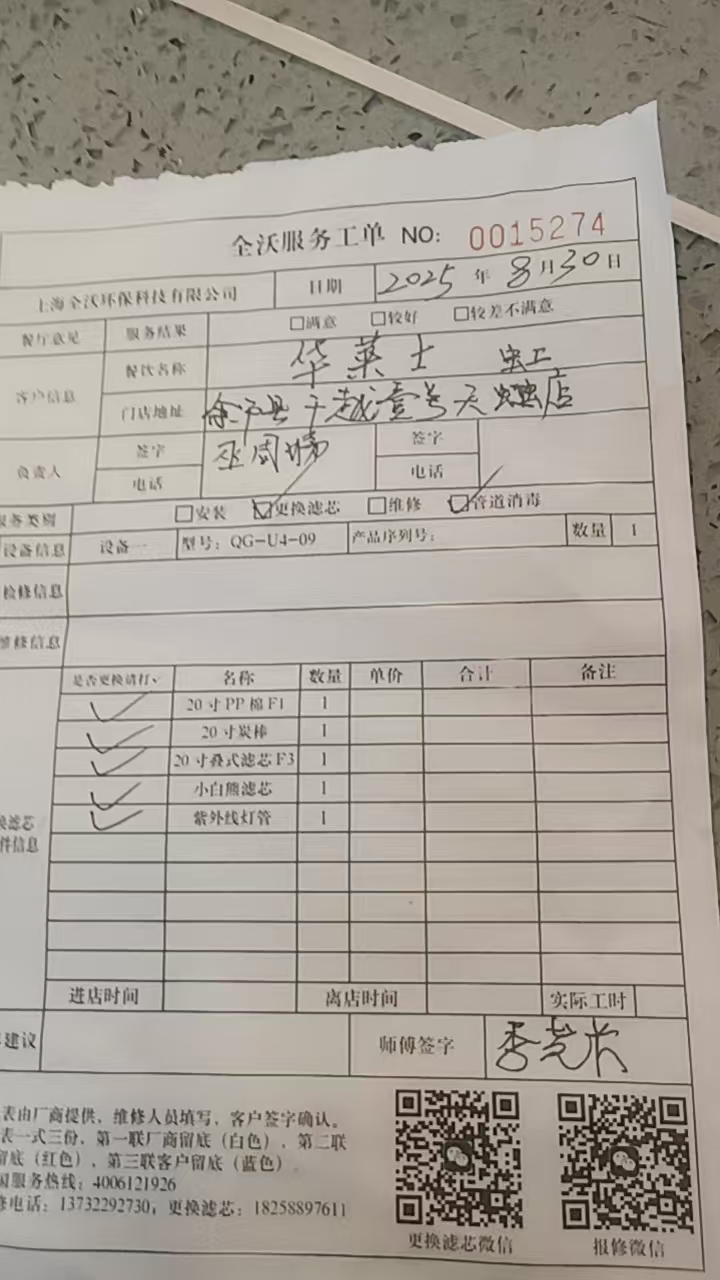 全沃服务工单 NO: 0015274
上海全沃环保科技有限公司 日期 2025 年 8 月 30 日
餐厅意见 服务结果 □满意 □较好 □较差不满意
客户信息 餐饮名称 华莱士
门店地址 余 县 干越壹号天 店
负责人 签字 巫周 签字
电话 电话
服务类别 □安装 ☑更换滤芯 □维修 ☑管道消毒
设备信息 设备一 型号: QG-U4-09 产品序列号: 数量 1
检修信息
维修信息
是否更换请打✓ 名称 数量 单价 合计 备注
✓ 20寸PP棉F1 1
✓ 20寸炭棒 1
✓ 20寸叠式滤芯F3 1
✓ 小白熊滤芯 1
✓ 紫外线灯管 1
换滤芯
件信息
进店时间 离店时间 实际工时
建议 师傅签字 李
表由厂商提供，维修人员填写，客户签字确认。
表一式三份，第一联厂商留底（白色），第二联
留底（红色），第三联客户留底（蓝色）
国服务热线：4006121926
修电话：13732292730，更换滤芯：18258897611
更换滤芯微信 报修微信